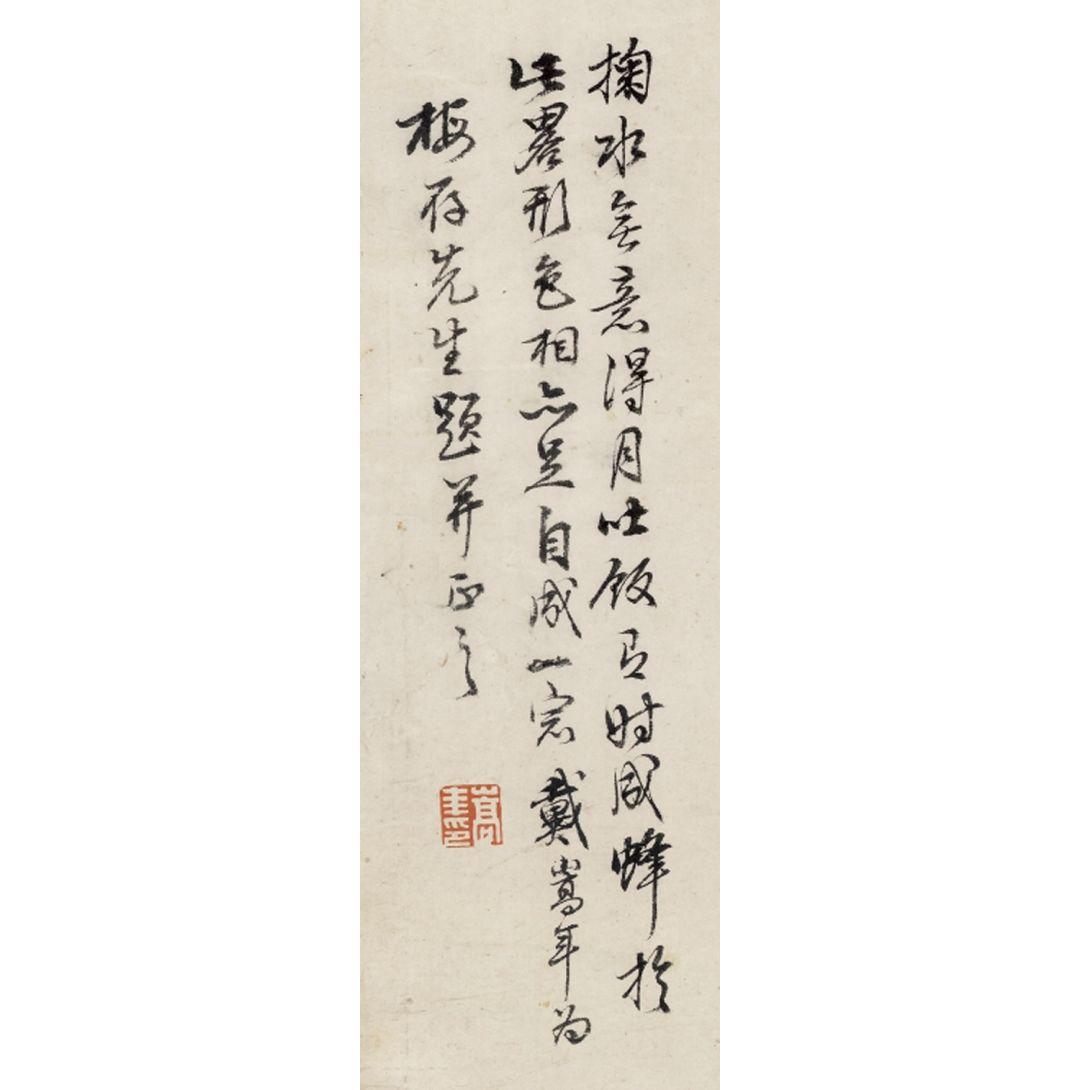 掬水無意得月吐飯有时成蜂於
此畧形色相亦足自成一宗戴嵩年为
梅存先生題并正之